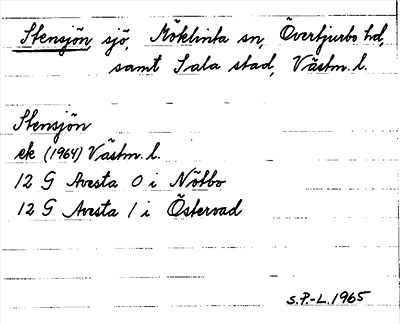 Stensjön, sjö, Möklinta sn, Övertjurbo hd,
samt Sala stad, Västm. l.
Stensjön
ek (1964) Västm. l.
12 G Avesta 0 i Nötbo
12 G Avesta 1 i Östervad
S.P.-L. 1965